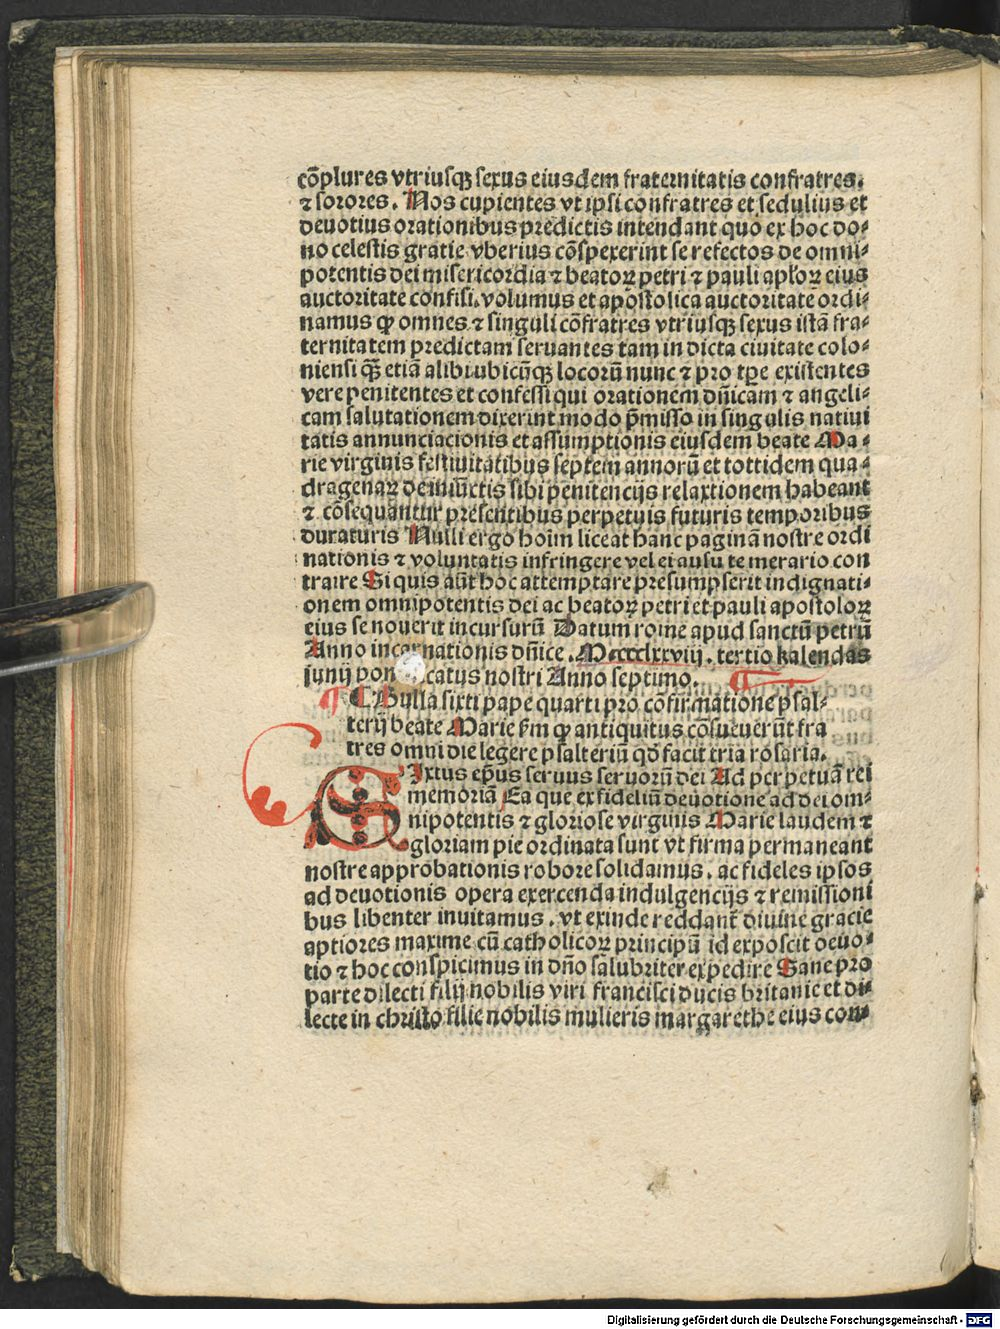 cōplures vtriusqꝫ sexus eiusdem fraternitatis confratres.
⁊ sorores. Nos cupientes vt ipsi confratres et sedulius et
deuotius orationibus predictis intendant quo ex hoc do⸗
no celestis gratie vberius cōspexerint se refectos de omni⸗
potentis dei misericordia ⁊ beatoꝝ petri ⁊ pauli apłoꝝ eius
auctoritate confisi. volumus et apostolica auctoritate ordi⸗
namus ꝙ omnes ⁊ singuli cōfratres vtriusqꝫ sexus istā fra⸗
ternitatem predictam seruantes tam in dicta ciuitate colo⸗
niensi qȝ etiā alibi ubicūqꝫ locorū nunc ⁊ pro tp̄e existentes
vere penitentes et confessi qui orationem dn̄icam ⁊ angeli⸗
cam salutationem dixerint modo p̄misso in singulis natiui
tatis annunciacionis et assumptionis eiusdem beate Ma⸗
rie virginis festiuitatibus septem annorū et tottidem qua⸗
dragenaꝝ de iniūctis sibi penitencijs relaxtionem habeant
⁊ cōsequantur presentibus perpetuis futuris temporibus
duraturis Nulli ergo hoīm liceat hanc paginā nostre ordi
nationis ⁊ voluntatis infringere vel ei ausu temerario con
traire Si quis aūt hoc attemptare presumpserit indignati⸗
onem omnipotentis dei ac beatoꝝ petri et pauli apostoloꝝ
eius se nouerit incursurū Datum rome apud sanctū petrū
Anno incarnationis dn̄ice. Mccccclxxviij. tertio kalendas
junij pon catus nostri Anno septimo.
¶ Bulla sixti pape quarti pro cōfirmatione p̄sal⸗
terij beate Marie ßm ꝙ antiquitus cōsueuerūt fra
tres omni die legere psalteriū qd̄ facit tria rosaria.
SIxtus ep̄us seruus seruorū dei Ad perpetuā rei
memoriā Ea que ex fideliū deuotione ad dei om⸗
nipotentis ⁊ gloriose virginis Marie laudem ⁊
gloriam pie ordinata sunt vt firma permaneant
nostre approbationis robore solidamus. ac fideles ipsos
ad deuotionis opera exercenda indulgencijs ⁊ remissioni
bus libenter inuitamus. vt exinde reddant᷑ diuine gracie
aptiores maxime cū catholicoꝝ principū id exposcit deuo⸗
tio ⁊ hoc conspicimus in dn̄o salubriter expedire Sane pro
parte dilecti filij nobilis viri francisci ducis britanie et di⸗
lecte in christo filie nobilis mulieris margarethe eius con⸗
Digitalisierung gefördert durch die Deutsche Forschungsgemeinschaft - DFG